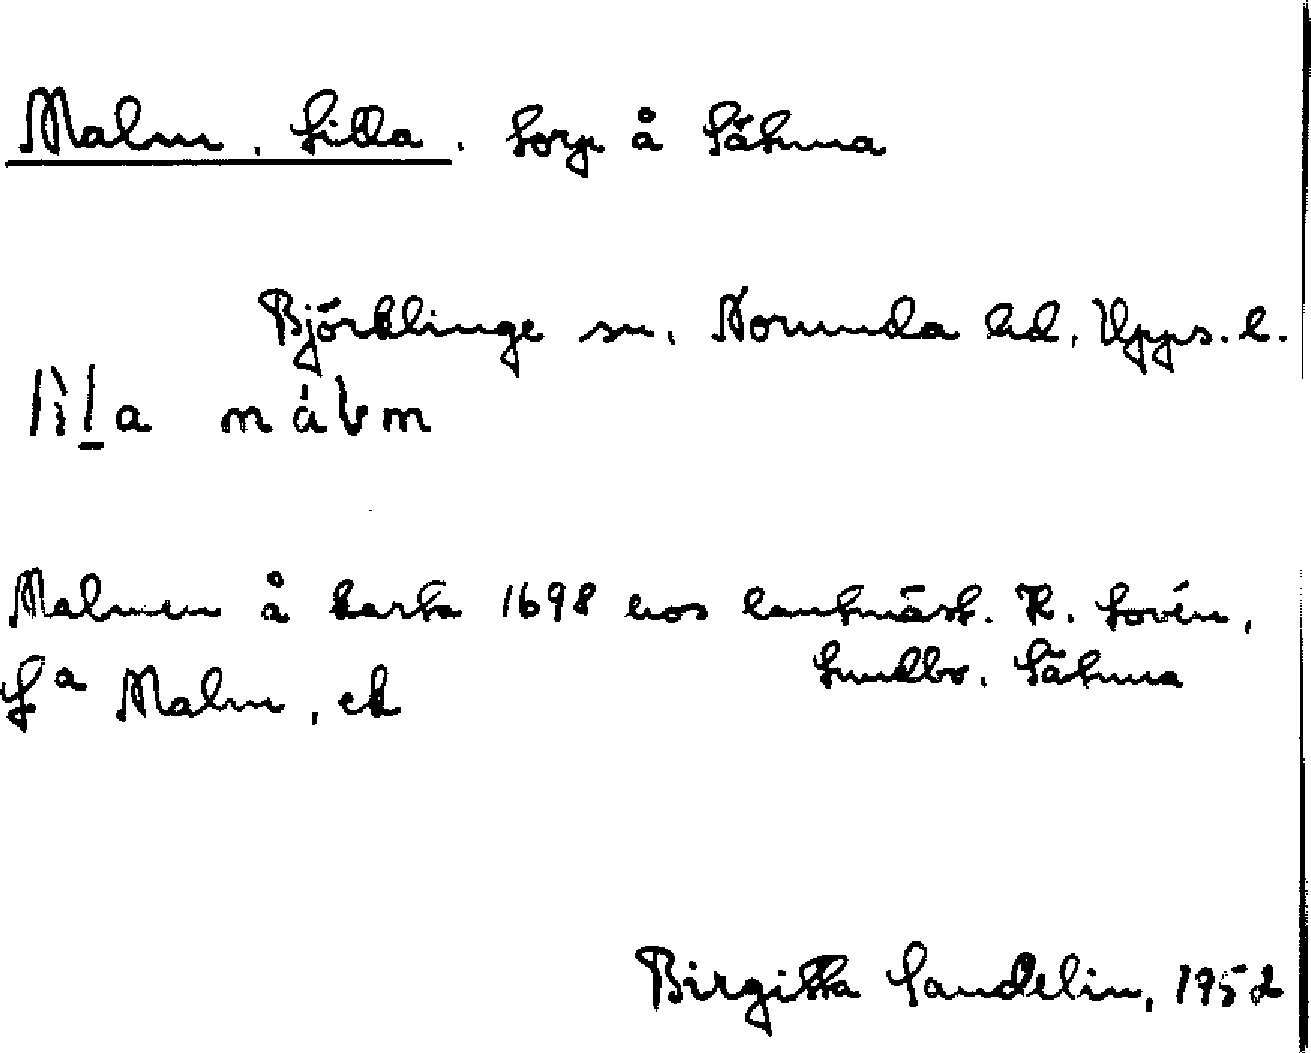 Malm, Lilla. torp å Sätuna
Björklinge sn. Norunda hd. Upps. l.
lìl̲a máɫm
Malmen å karta 1698 hos lantmät. K. Lovén,
Lundbo. Sätuna
La Malm, ek
Birgitta Sandelin, 1952